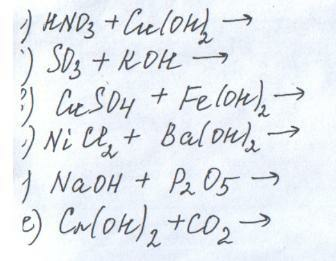 ) HNO3 + Cu(OH)2 →
) SO3 + KOH →
) CuSO4 + Fe(OH)2 →
) NiCl2 + Ba(OH)2 →
) NaOH + P2O5 →
е) Cr(OH)2 + CO2 →